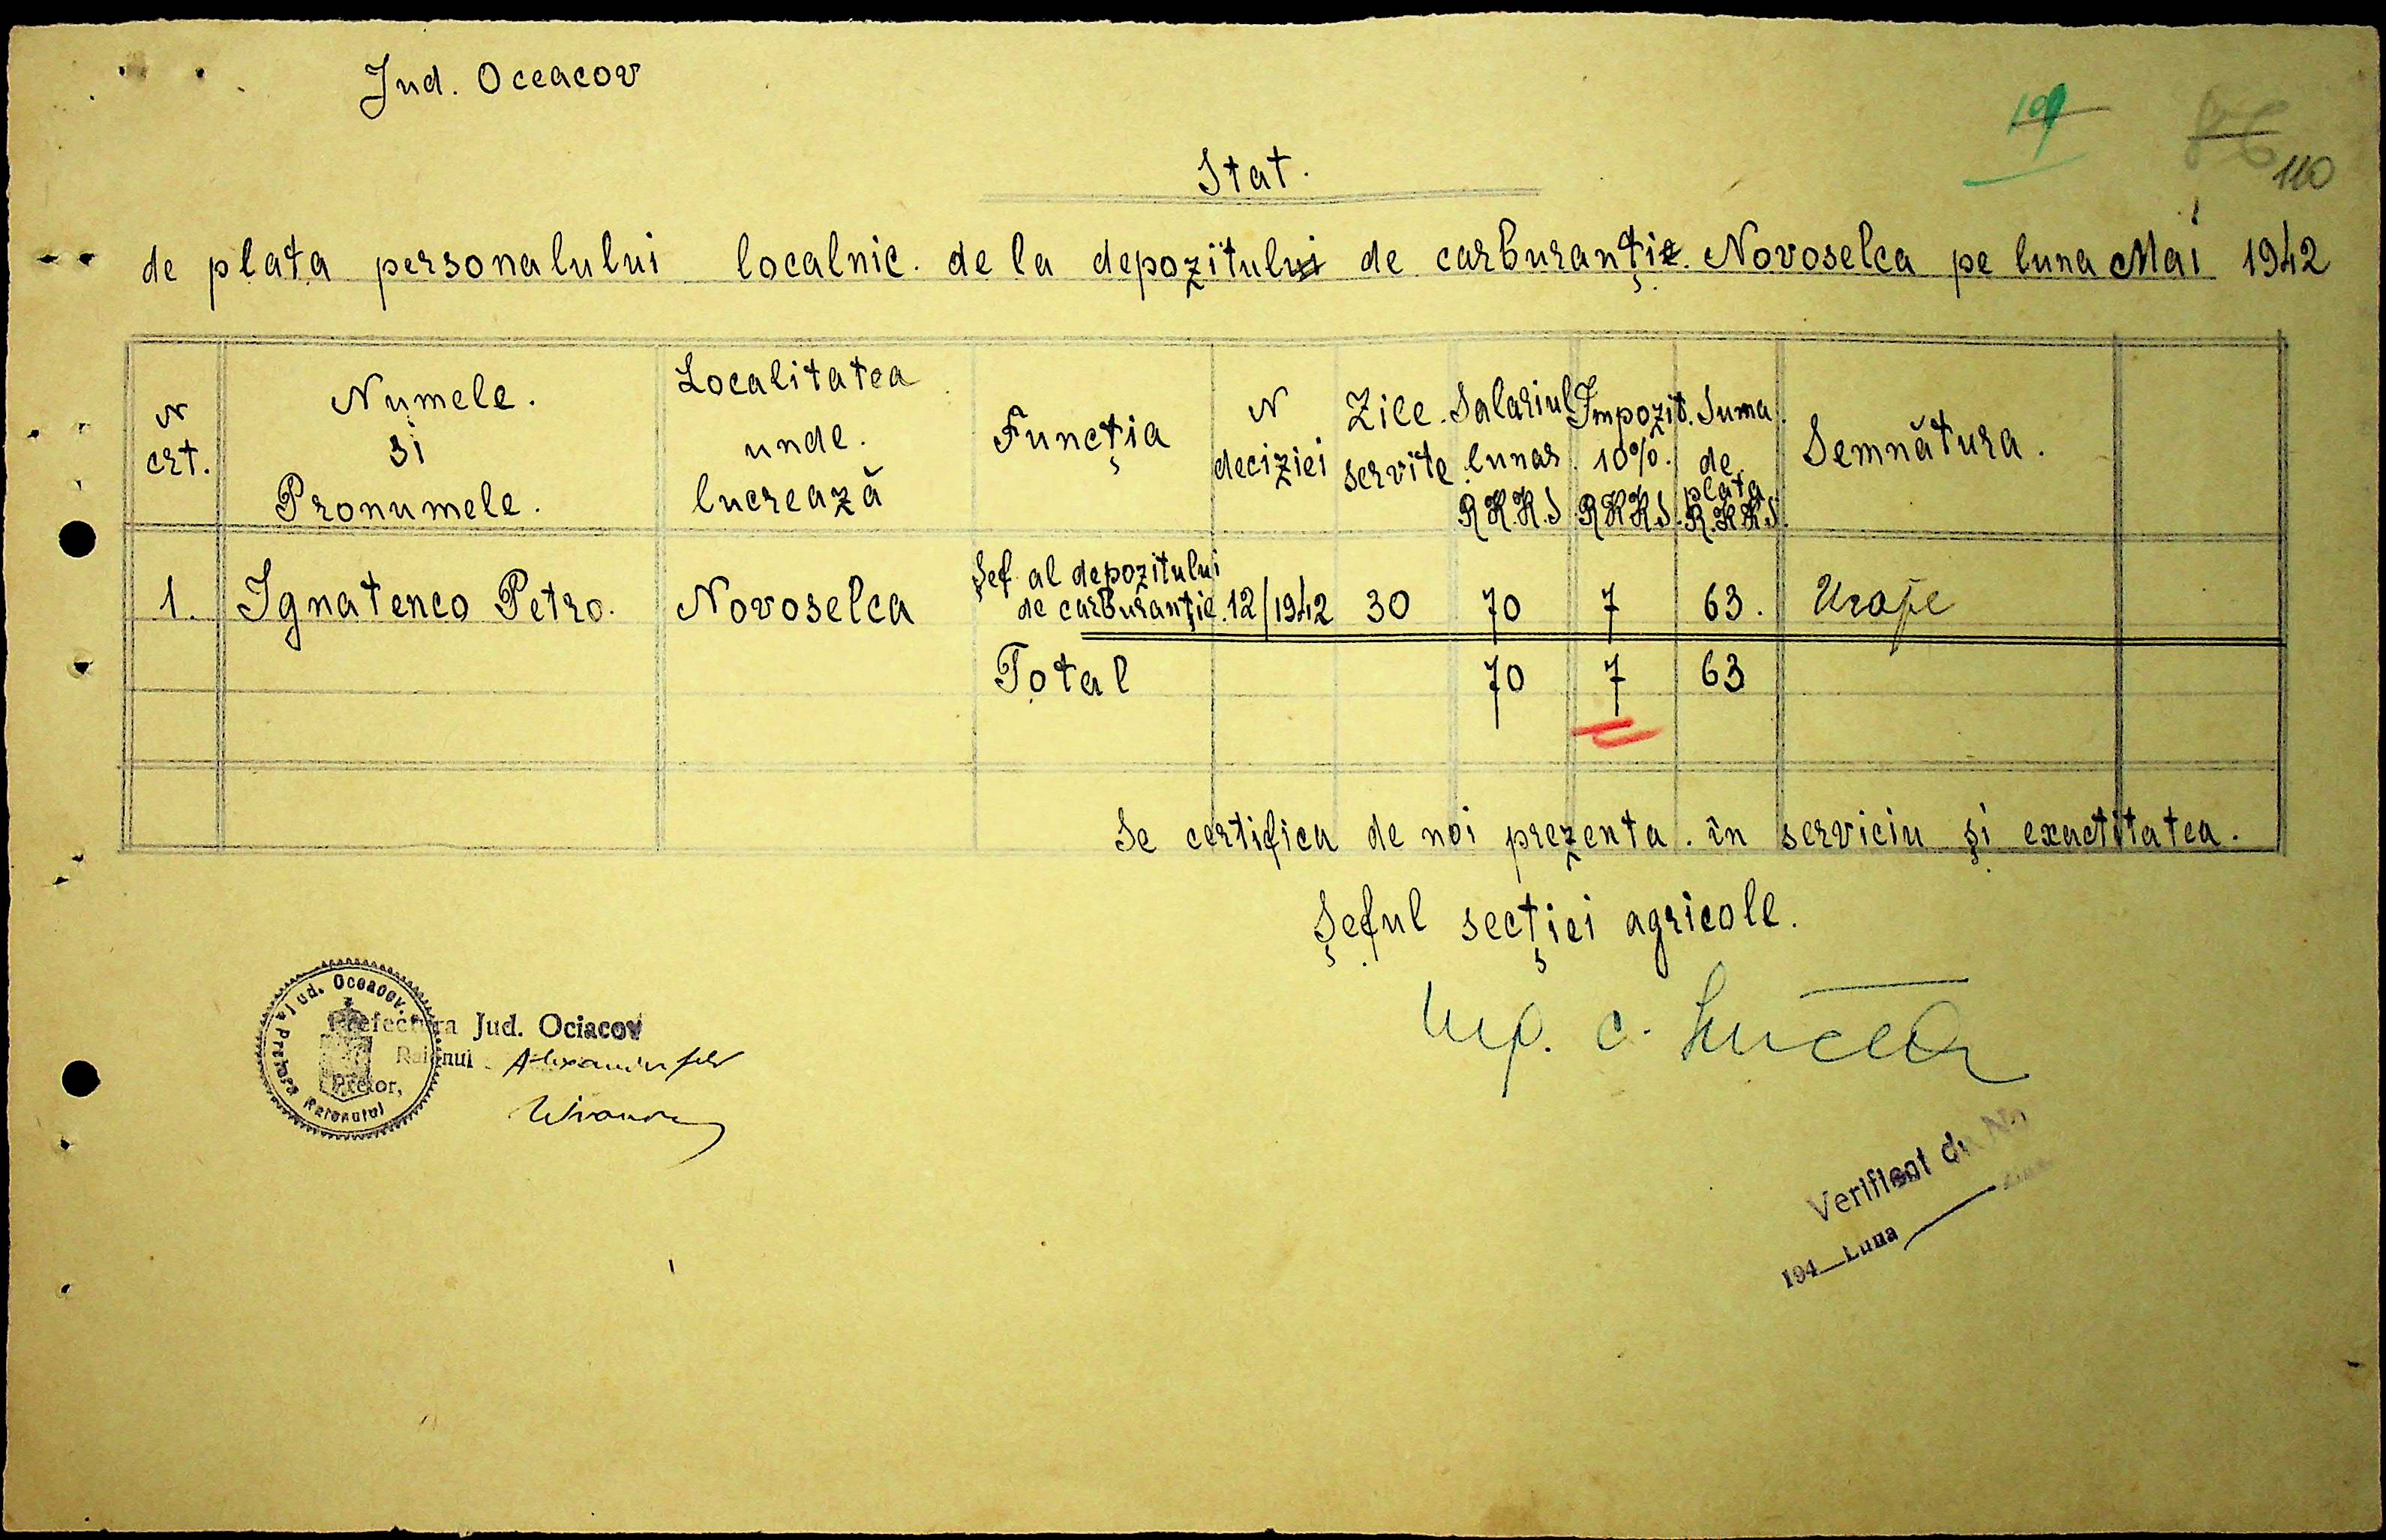 Jud. Oceacov
109
86
110
Stat.
de plata personalului localnic. de la depozitului de carburanţie. Novoselca pe luna Mai 1942
N crt.
Numele. si Pronumele.
Localitatea unde. lucrează
Funcţia
N deciziei
Zile. servite
Salariul lunar R.K.K.S
Impozit. 10%. RKKS.
Suma. de. plata R.K.K.S.
Semnătura.
1. Ignatenco Petro. Novoselca Şef al depozitului de carburanţie. 12/1942 30 70 7 63.
Total 70 7 63
Se certifica de noi prezenta. în serviciu şi exactitatea.
Şeful secţiei agricole.
Jud. Oceacov.
Pretura Raionului
Prefectura Jud. Ociacov
Raionul
Pretor,
Verificat de
194_ Luna